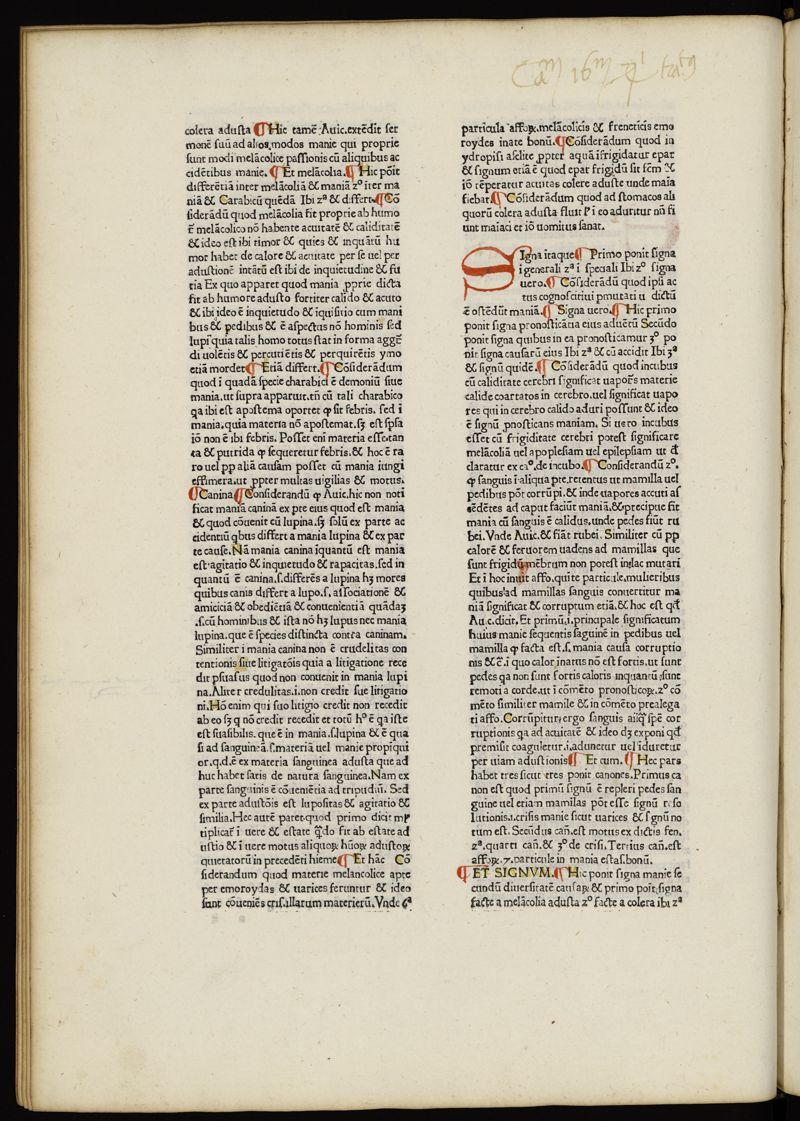 colera adusta ¶ Hic tamē Auic. extēdit ser
monē suū ad alios modos manie qui proprie
sunt modi melācolice passionis cū aliquibus ac
cidētibus manie. ¶ Et melācolia. ¶ Hic pōit
differētiā inter melācoliā & maniā zº īter ma
niā & Carabicū quēdā Ibi zª & differt. ¶ Cō
siderādū quod melācolia fit proprie ab humo
r̄ melācolico nō habente acuitatē & caliditatē
& ideo est ibi timor & quies & inquātū hu
mor habet de calore & acuitate per se uel per
adustionē intātū est ibi de inquietudine & fu
ria Ex quo apparet quod mania ꝓprie dicta
fit ab humore adusto fortiter calido & acuto
& ibi ideo ē inquietudo & iquisitio cum mani
bus & pedibus & ē aspectus nō hominis sed
lupi quia talis homo totus stat in forma aggr̄
di uolētis & percutiētis & perquirētis ymo
etiā mordet ¶ Etiā differt. ¶ Cōsiderādum
quod ī quadā specie charabici ē demoniū siue
mania. ut supra apparuit. tn̄ cū tali charabico
qa ibi est apostema oportet ꝙ sit febris. sed ī
mania. quia materia nō apostemat. sꝫ est spsa
iō non ē ibi febris. Posset enī materia esse tan
ta & putrida ꝙ sequeretur febris. & hoc ē ra
ro uel ꝓp aliā causam posset cū mania iungi
effimera. ut ꝓpter multas uigilias & motus.
¶ Canina ¶ Considerandū ꝙ Auic. hic non noti
ficat maniā caninā ex pte eius quod est mania
& quod cōuenit cū lupina. sꝫ solū ex parte ac
cidentiū qbus differt a mania lupina & ex par
te cause. Nā mania canina iquantū est mania
est agitatio & inquietudo & rapacitas. sed in
quantū ē canina. s. differēs a lupina hꝫ mores
quibus canis differt a lupo. s. associationē &
amiciciā & obediētiā & conuenientiā quādaꝫ
.s. cū hominibus & ista nō hꝫ lupus nec mania
lupina. que ē species distincta contra caninam.
Similiter ī mania canina non ē crudelitas con
tentionis siue litigatōis quia a litigatione rece
dit psuasus quod non conuenit in mania lupi
na. Aliter credulitas. i. non credit sue litigatio
ni. Hō enim qui suo litigio credit non recedit
ab eo sꝫ q nō credit recedit et totū hº ē qa iste
est suasibilis. que ē in mania. s. lupina & ē qua
si ad sanguineā. s. materiā uel manie propiqui
or. q. d. ē ex materia sanguinea adusta que ad
huc habet satis de natura sanguinea. Nam ex
parte sanguinis ē cōueniētia ad tripudiū. Sed
ex parte adustōis est lupositas & agitatio &
similia. Hec autē patet quod primo dicit mꝉ
tiplicar̄ ī uere & estate q̄do fit ab estate ad
ustio & ī uere motus aliquoꝝ hūoꝝ adustoꝝ
quietatorū in precedēti hieme ¶ Et hāc Cō
siderandum quod materie melancolice apte
per emoroydas & uarices feruntur & ideo
sunt cōueniēs crisi illarum materierū. Vnde 6ª
particula afforꝝ. melācolicis & freneticis emo
roydes inate bonū. ¶ Cōsiderādum quod in
ydropisi asclite ꝓpter aquā īfrigidatur epar
& signum etiā ē quod epar frigidū sit scm̄
iō rēperatur acuitas colere aduste unde maia
fiebat. ¶ Cōsiderādum quod ad stomacos ali
quorū colera adusta fluit ꝑ ī eo aduritur nn̄ fi
unt maiaci et iō uomitus sanat.
Signa itaque ¶ Primo ponit signa
ī generali zª ī speciali Ibi zº signa
uero. ¶ Cōsiderādū quod ipsi ac
tus cognoscitiui pmutati ut dictū
ē ostēdūt maniā. ¶ Signa uero. ¶ Hic primo
ponit signa pronosticātia eius aduētū Secūdo
ponit signa quibus in ea pronosticamur 3º po
nit signa causarū eius Ibi zª & cū accidit Ibi 3ª
& signū quidē. ¶ Cōsiderādū quod incubus
cū caliditate cerebri significat uapores materie
calide coartatos in cerebro. uel significat uapo
res qui in cerebro calido aduri possunt & ideo
ē signū pnosticans maniam. Si uero incubus
esset cū frigiditate cerebri potest significare
melācoliā uel apoplesiam uel epilepsiam ut d̄
claratur ex cº. de incubo. ¶ Considerandū zº.
ꝙ sanguis ī aliqua pte. retentus ut mamilla uel
pedibus pōt corrūpi. & inde uapores accuti as
cēdētes ad caput faciūt maniā. & precipue fit
mania cū sanguis ē calidus. unde pedes fiūt ru
bei. Vnde Auic. & fiāt rubei. Similiter cū ꝓp
calorē & feruorem uadens ad mamillas que
sunt frigidū mēbrum non potest in lac mutari
Et ī hoc inuit affo. quite particule. mulieribus
quibus ad mamillas sanguis conuertitur ma
niā significat & corruptum etiā. & hoc est qd̄
Auic. dicit. Et primū. i. principale significatum
huius manie sequentis saguinē in pedibus uel
mamilla ꝙ facta est. s. mania causa corruptio
nis & c̄. ī quo calor inatus nō est fortis. ut sunt
pedes qa non sunt fortis caloris inquantū sunt
remoti a corde. ut ī cōmēto pronosticoꝝ. zº cō
mēto similiter mamille & in cōmēto prealega
ti affo. Corrūpitur ergo sanguis aliq̄ spē cor
ruptionis qa ad acuitatē & ideo dꝫ exponi qd̄
premisit coaguletur. i. adunetur uel īduretur
per uiam adustionis ¶ Et cum. ¶ Hec pars
habet tres sicut tres ponit canones. Primus ca
non est quod primū signū ē repleri pedes san
guine uel etiam mamillas pōt esse signū reso
lutionis. i. crisis manie sicut uarices & signū no
tum est. Secūdus cañ. est motus ex dictis fen.
zª. quarti cañ. & 3º de crisi. Tertius cañ. est
affoꝝ. 7. particule in mania estas. bonū.
¶ ET SIGNVM. ¶ Hic ponit signa manie se
cundū diuersitatē causaꝝ & primo pōit signa
facte a melācolia adusta zº facte a colera ibi zª